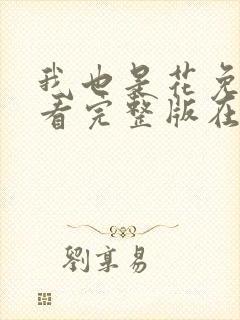 我也是花免
看完整版在
劉享易